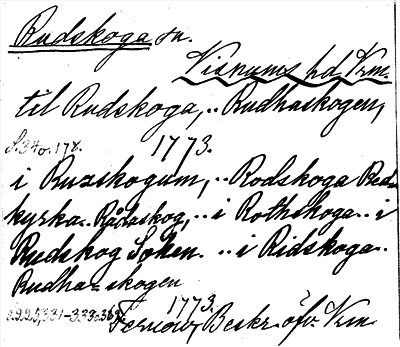 Rudskoga sn.
Visnums hd. Vrm.
til Rudskoga, .. Rudhaskogen,
S. 34 o. 178. 1773.
i Ruzskogum, .. Rodskoga
kyrka .. Rådaskog, .. i Rothskoga .. i
Rudskog Soken. .. i Ridskoga ..
Rudha-skogen
1773.
Fernow, Beskr. öfv. Vrm